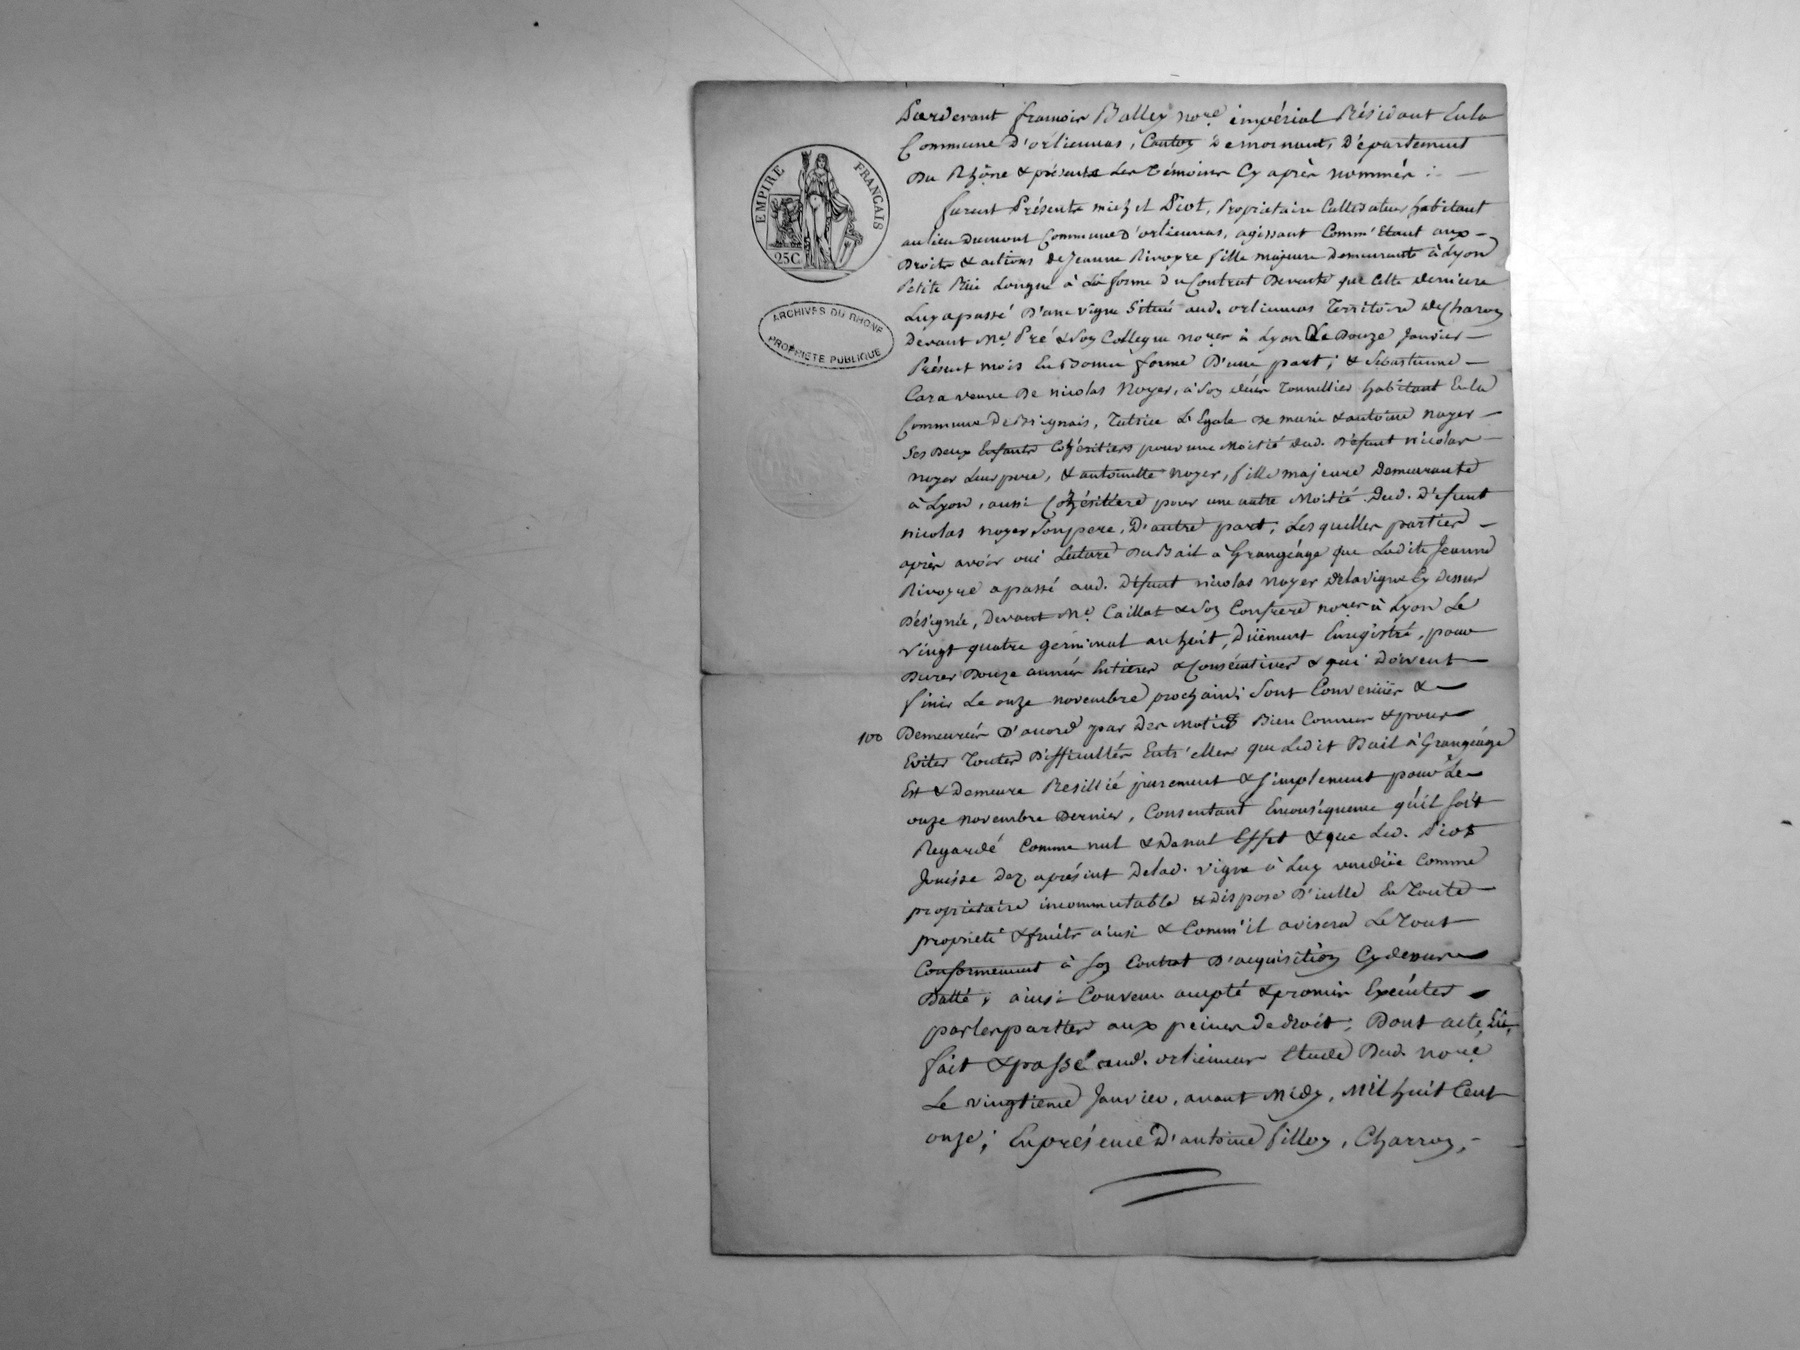 EMPIRE FRANÇAIS
25C
ARCHIVES DU RHONE
PROPRIÉTÉ PUBLIQUE
Pardevant françois Balley nore. impérial Résidant En la
Commune D'orliennas, Canton De mornant, Département
Du Rhône & présents Les Témoins Cy après nommés :
furent Présents michel Piot, Propriétaire Cultivateur habitant
au lieu Dumont Commune D'orliennas, agissant Comm' Etant aux
Droits & actions de Jeanne Rivoyre fille majeure Demeurante à Lyon
Petite Rüe Longue à La forme du Contrat De vente que Cette derniere
Luy a passé D'une vigne Située aud. orliennas Territoire de Charvoy
devant Me. Pré & Son Collegue nores à Lyon Le Douze Janvier
Présent mois En Bonne forme D'une part ; & Sebastienne
Cara veuve De nicolas Noyer, à Son décès Tonnellier habitant En la
Commune De Brignais, Tutrice LEgale de marie & antoine noyer
Ses Deux Enfants Cohéritiers pour une Moitié dud. Défunt nicolas
noyer Leur pere, & antoinette noyer, fille majeure Demeurante
à Lyon, aussi Cohéritiere pour une autre Moitié Dud. Défunt
nicolas noyer Son pere, D'autre part ; Les quelles parties
après avoir oui Lecture Du Bail à Grangéage que Ladite Jeanne
Rivoyre a passé aud. Défunt nicolas noyer De la vigne Cy dessus
Désignée, Devant Me. Caillat & Son Confrere nores à Lyon Le
vingt quatre germinal an huit, Düement Enregistré, pour
Durer Douze années Entieres & Consécutives & qui Doivent
finir Le onze novembre prochain ; Sont Convenües &
100 Demeurées D'acord par Des Motifs Bien Connus & pour
Eviter Toutes Difficultés Entr'elles que Ledit Bail à Grangéage
Est & Demeure Resillié purement & Simplement pour Le
onze novembre Dernier, Consentant En conséquence qu'il Soit
Regardé Comme nul & De nul Effet & que Led. Piot
Jouisse Dez aprésent De lad. vigne à Luy vendüe Comme
propriétaire incommutable & dispose D'icelle En Toute
propriété & fruits ainsi & Comm'il avisera Le Tout
Conformement à Son Contrat D'acquisition Cy dessus
Datté ; ainsi Convenu accepté & promis Exécuter
par les parties aux peines De droit ; Dont acte, Lû,
fait & passé aud. orliennas Etude Dud. nore.
Le vingtieme Janvier, avant Midy, Mil huit Cent
onze ; En présence D'antoine fillon, Charron,